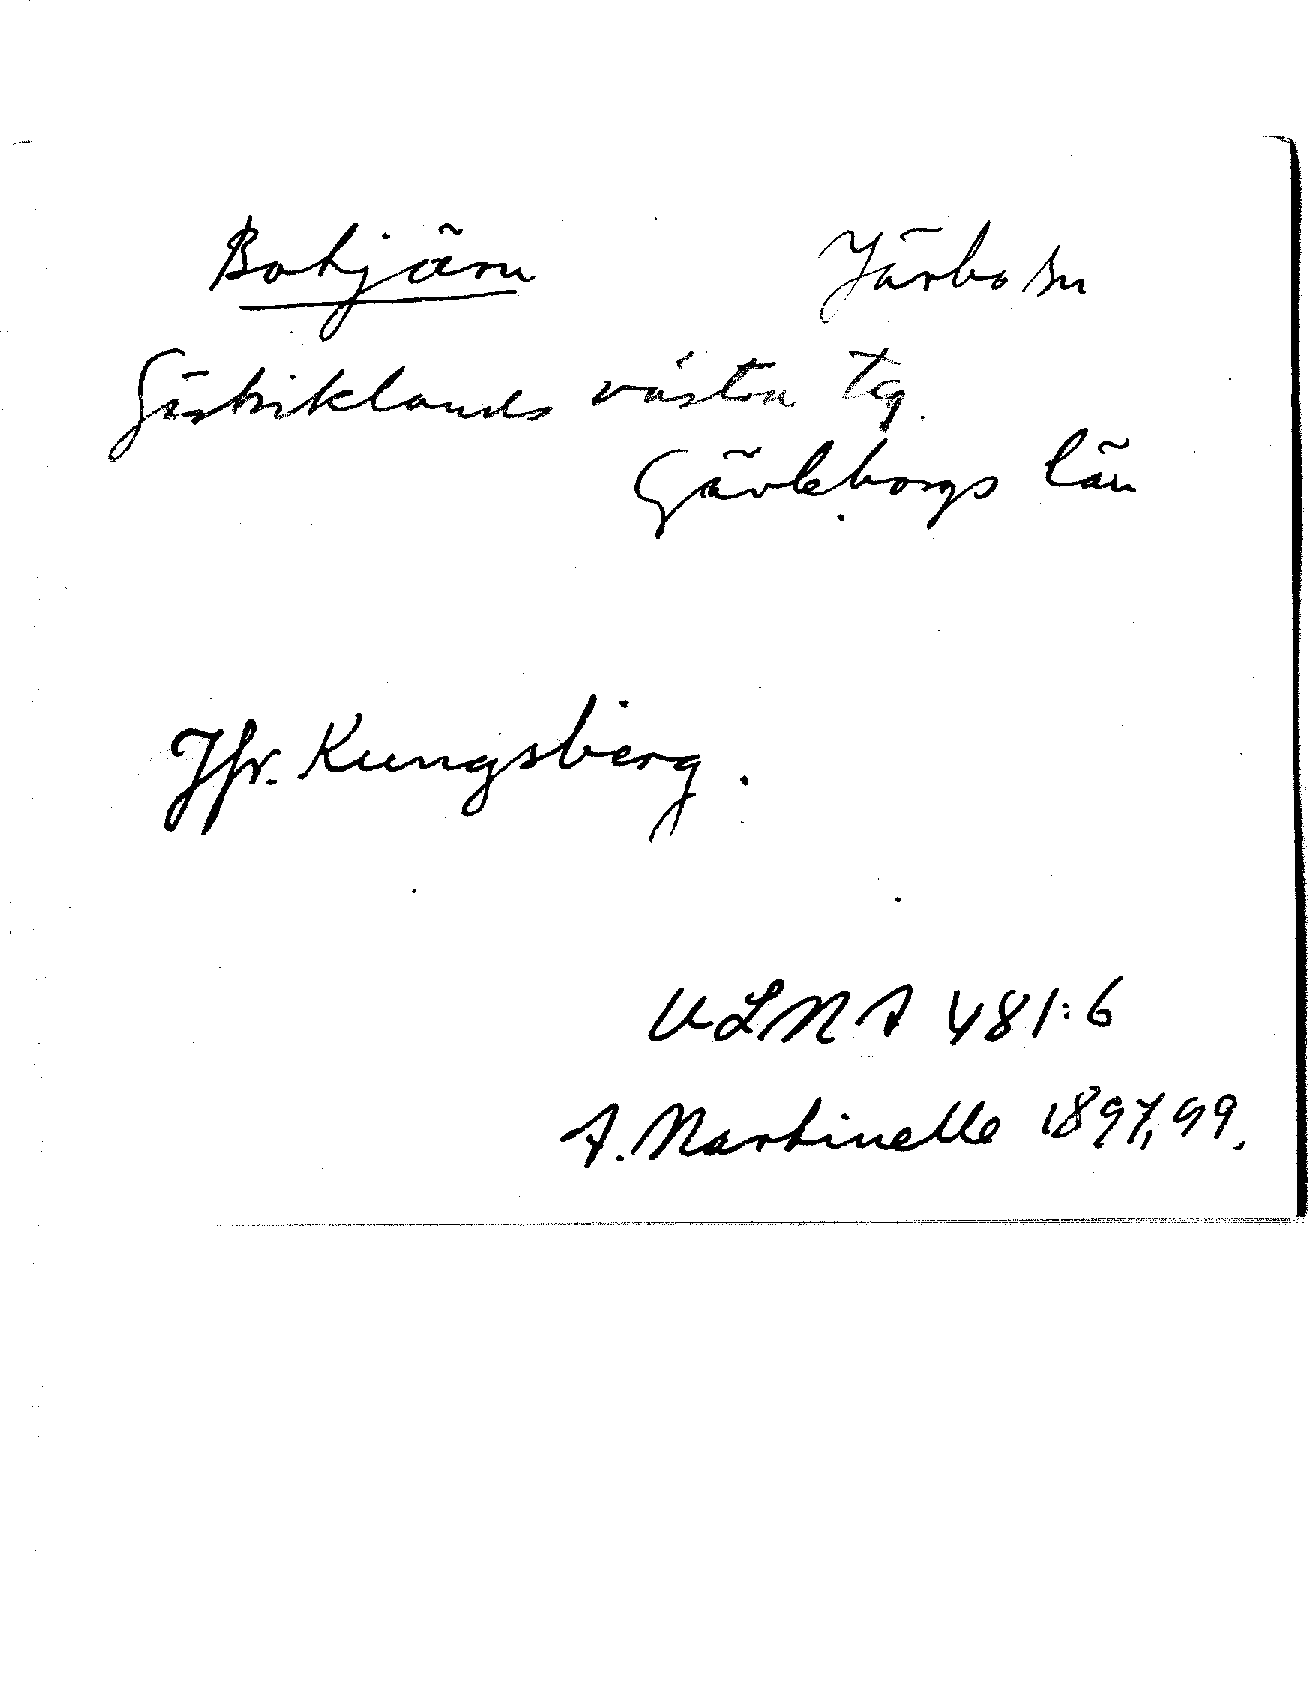 Botjärn Järbo sn
Gästriklands västra tg.
Gävleborgs län
Jfr. Kungsberg.
ULMA 481:6
A. Martinelle 1897, 99.